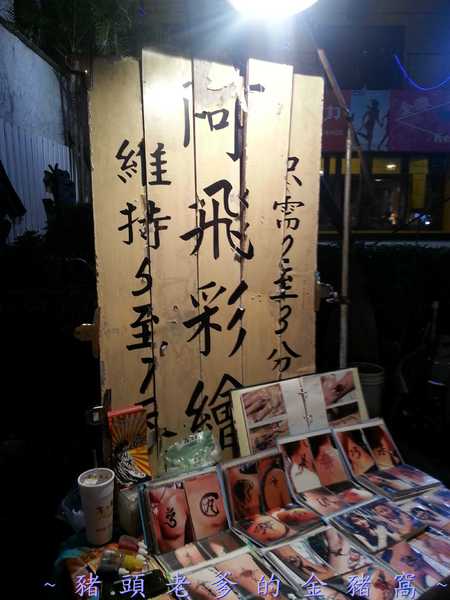 只需2至3分
阿飛彩繪
維持5至7
~豬頭老爹的金豬窩~